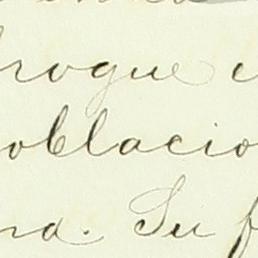 rogue e
oblacio
na. Su f